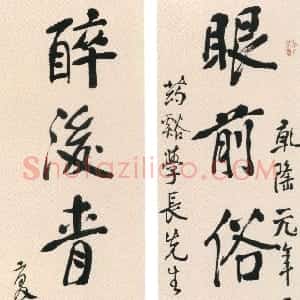 乾隆元年
眼前俗
药谿學長先生
醉後青
Shufaziliao.com